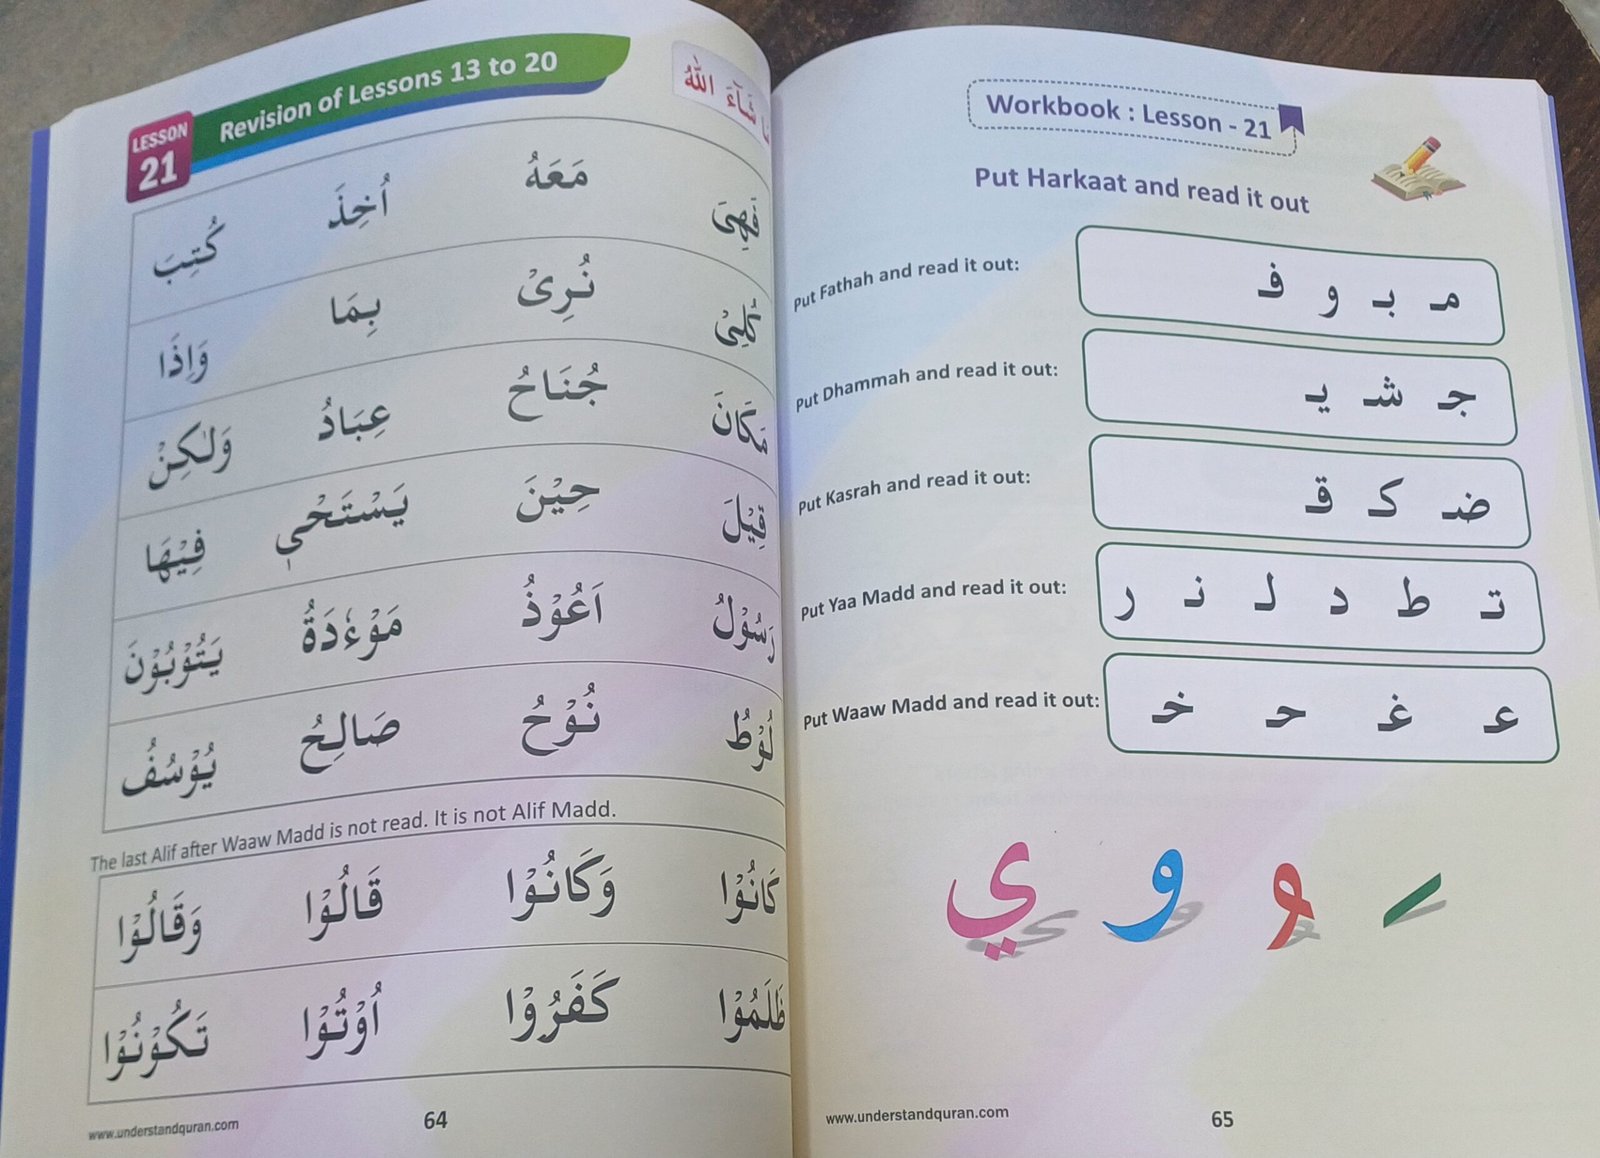 LESSON 21
Revision of Lessons 13 to 20
مَا شَآءَ اللّٰهُ
فَهِىَ مَعَهُ اُخِذَ كُتِبَ
كُلِىْ نُرِىْ بِمَا وَاِذَا
مَكَانَ جُنَاحُ عِبَادُ وَلٰكِنْ
قِيْلَ حِيْنَ يَسْتَحْىٖ فِيْهَا
رَسُوْلُ اَعُوْذُ مَوْءٗدَةُ يَتُوْبُوْنَ
لُوْطُ نُوْحُ صَالِحُ يُوْسُفُ
The last Alif after Waaw Madd is not read. It is not Alif Madd.
كَانُوْا وَكَانُوْا قَالُوْا وَقَالُوْا
ظَلَمُوْا كَفَرُوْا اُوْتُوْا تَكُوْنُوْا
www.understandquran.com
64
Workbook : Lesson - 21
Put Harkaat and read it out
Put Fathah and read it out:
مـ بـ و فـ
Put Dhammah and read it out:
جـ شـ يـ
Put Kasrah and read it out:
ضـ كـ قـ
Put Yaa Madd and read it out:
تـ ط د لـ نـ ر
Put Waaw Madd and read it out:
عـ غـ حـ خـ
َ ُ و ي
www.understandquran.com
65